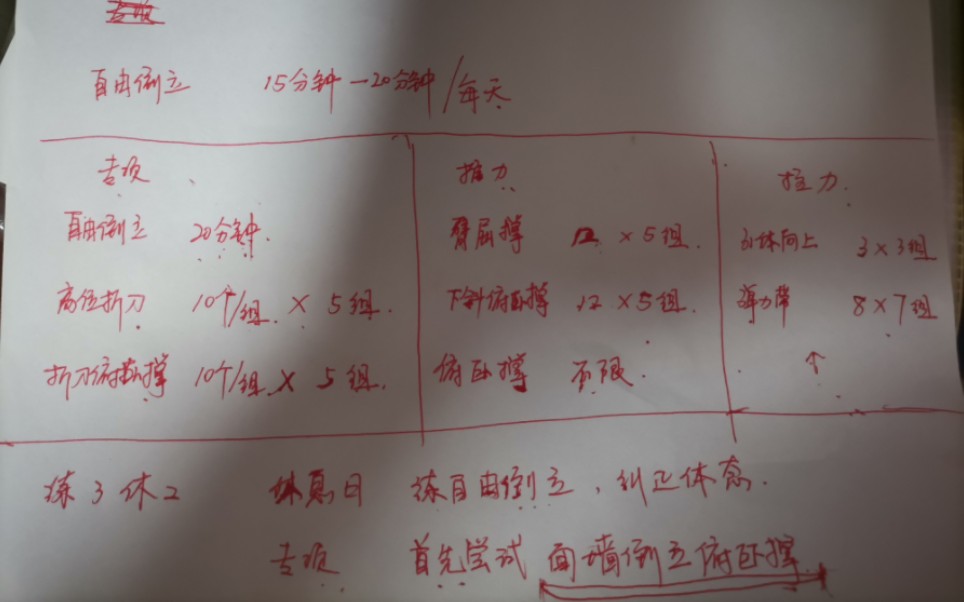 自由倒立 15分钟—20分钟/每天
专项 推力 拉力
自由倒立 20分钟 臂屈撑 12 × 5组 引体向上 3×3组
高位折刀 10个/组 × 5组 下斜俯卧撑 12 × 5组 弹力带 8×7组
折刀俯卧撑 10个/组 × 5组 俯卧撑 不限 ↑
练3休2 休息日 练自由倒立，纠正体态.
专项 首先尝试 面墙倒立俯卧撑